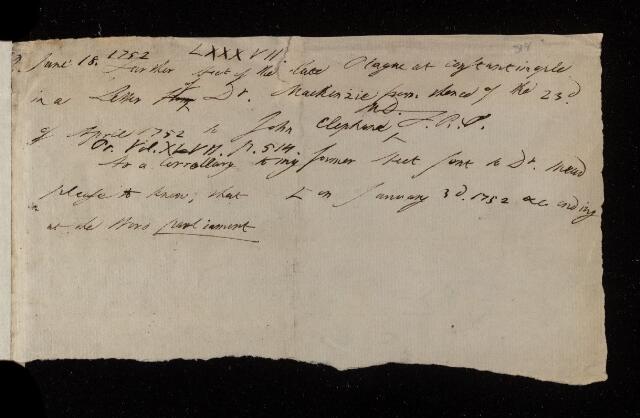 June 18. 1752 LXXXVII
Further Acct of the late Plague at Constantinople
in a Letter from Dr. Mackenzie from thence of the 23d.
of April 1752 to John Clephane M.D. F.R.S.
Vol. XLVII. p. 514.
As a Corrollary to my former Acct sent to Dr. Mead
please to know, that on January 3d. 1752 &c ending
at the Word parliament